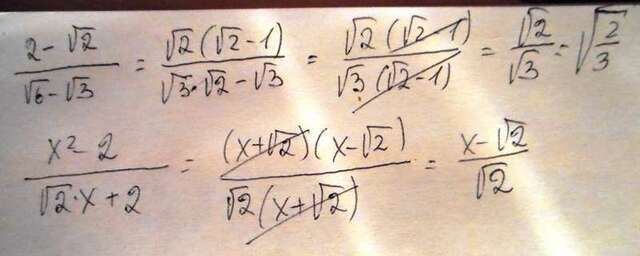 (2 - √2)/(√6 - √3) = (√2(√2 - 1))/(√3·√2 - √3) = (√2(√2 - 1))/(√3(√2 - 1)) = √2/√3 = √(2/3)
(x² - 2)/(√2·x + 2) = ((x+√2)(x-√2))/(√2(x+√2)) = (x-√2)/√2